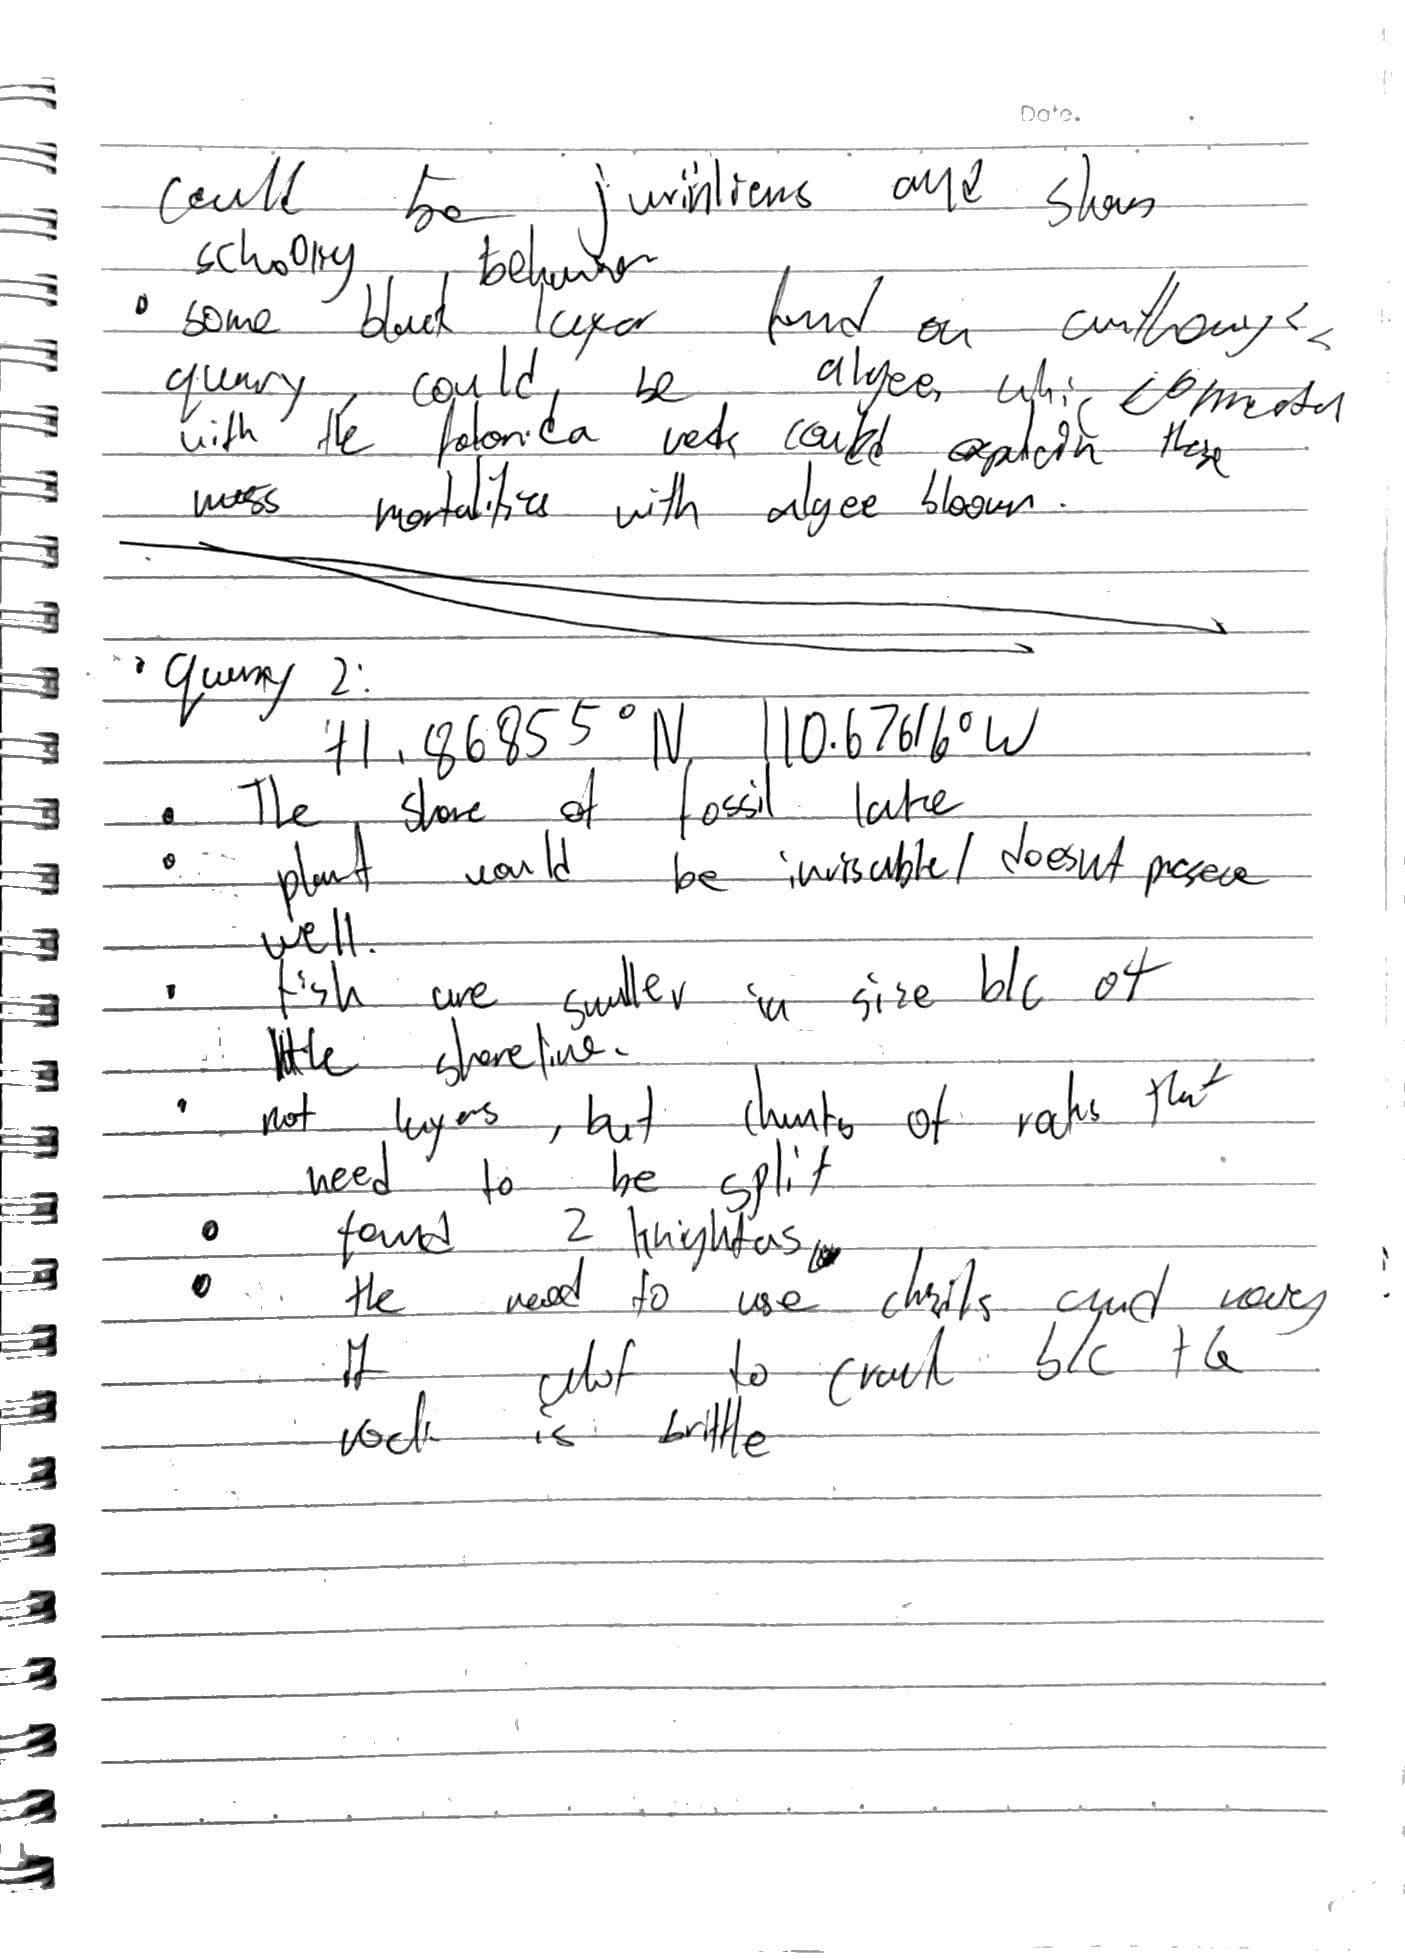 Date.
could be and shows
schooling behavior
some black layer found on anthonys
quarry, could be algee,
with the rock could explain these
mass mortalities with algee bloom.
Quarry 2:
41.86855°N, 110.67616°W
The shore of fossil lake
plant would be invisable/ doesnt
well.
fish are smaller in size b/c of
little shoreline.
not layers, but chunks of rocks that
need to be split
found 2 knightas
the need to use and
It alot to crack b/c the
rock is brittle